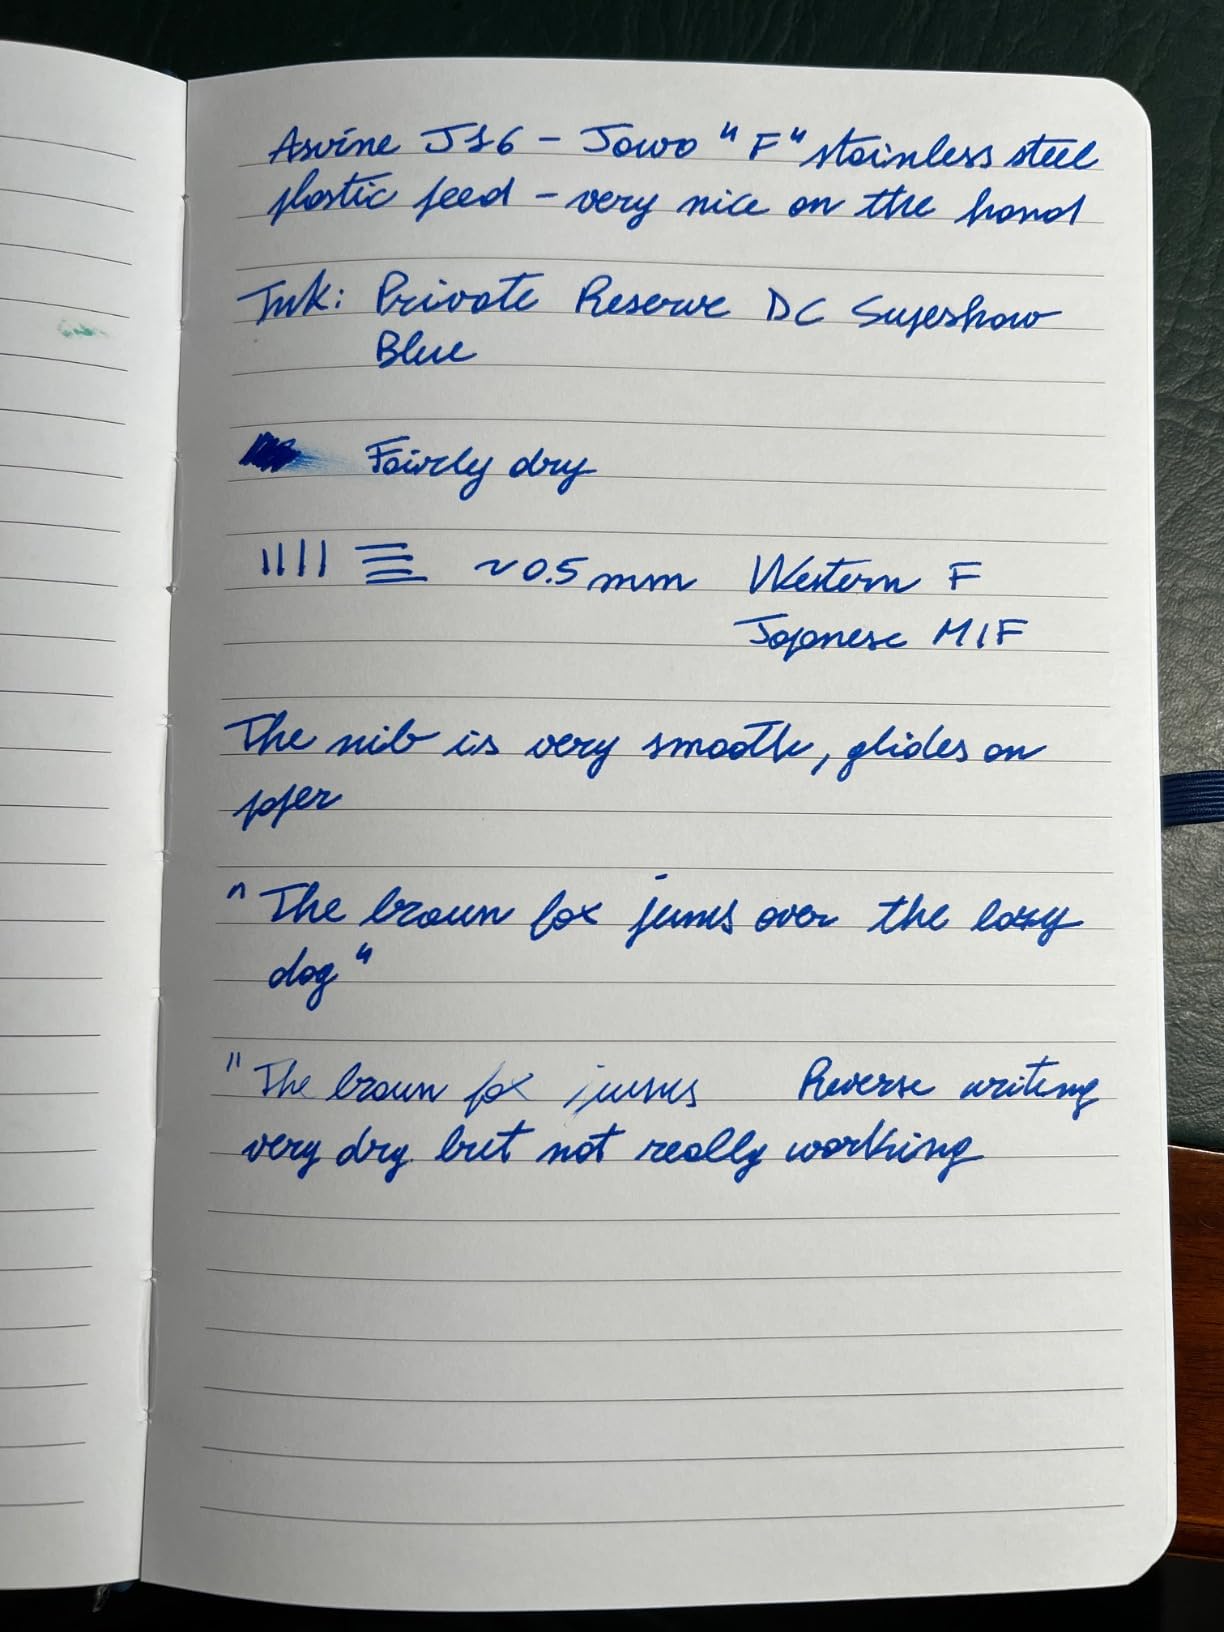 Asvine J16 - Jowo "F" stainless steel
plastic feed - very nice on the hand
Ink: Private Reserve DC Supershow
Blue
Fairly dry
~0.5 mm Western F
Japnese M/F
The nib is very smooth, glides on
paper
"The brown fox jumps over the lazy
dog"
"The brown fox jumps Reverse writing
very dry but not really working